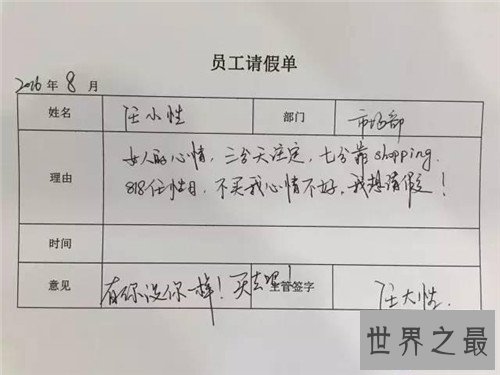 员工请假单
2016 年 8 月
姓名 任小性 部门 市场部
理由 女人的心情,三分天注定,七分靠shopping.
818任性日,不买我心情不好,我想请假!
时间
意见 有你没你一样!买去吧! 主管签字 任大性.
世界之最